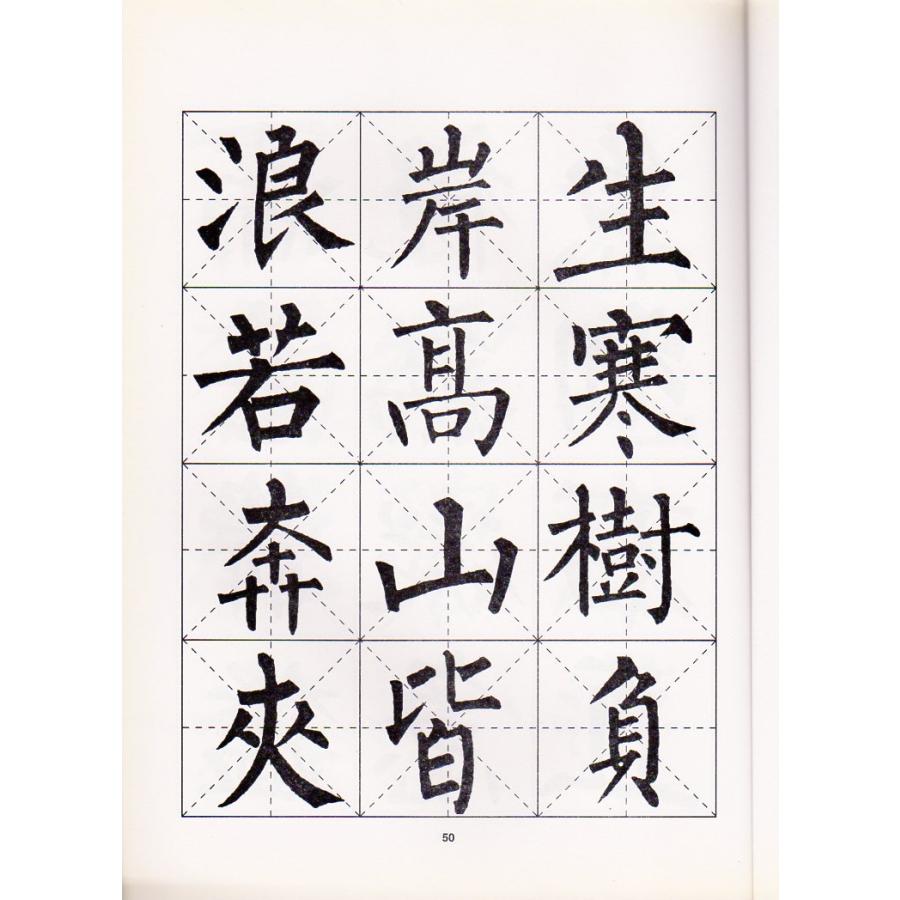 浪若奔夾
岸髙山皆
生寒樹負
50